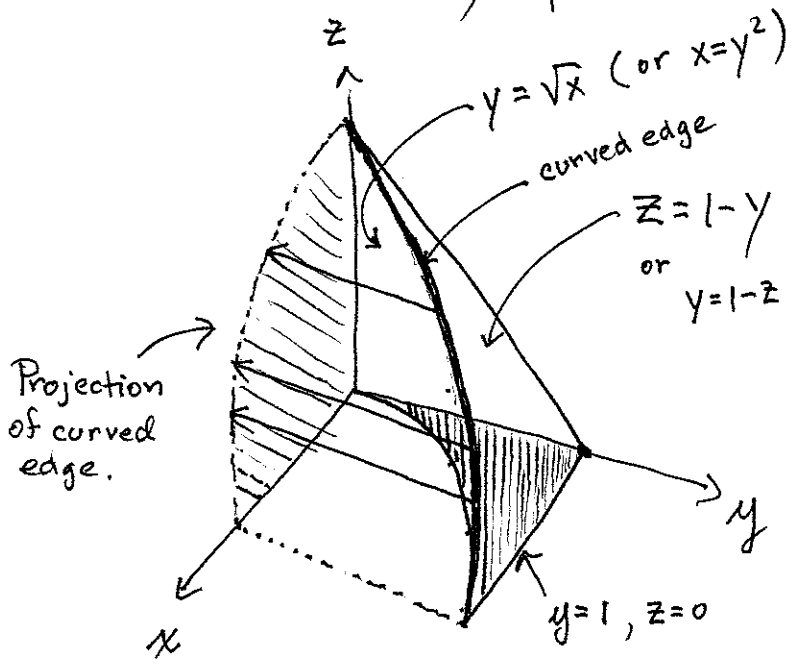 z
y = √x (or x=y²)
curved edge
z = 1-y
or
y=1-z
Projection
of curved
edge.
y
x
y=1, z=0